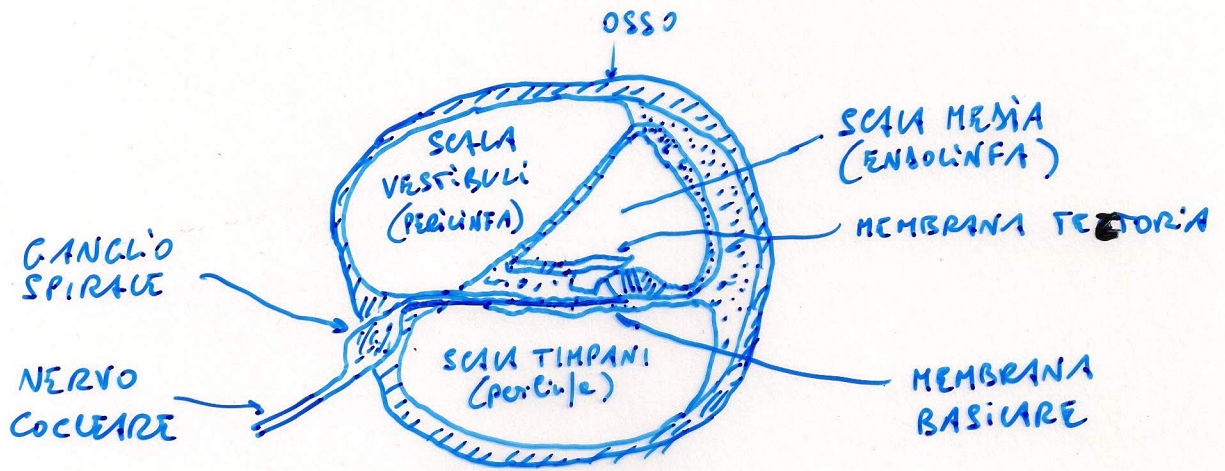 OSSO
SCALA
VESTIBULI
(PERILINFA)
SCALA MEDIA
(ENDOLINFA)
MEMBRANA TECTORIA
GANGLIO
SPIRALE
SCALA TIMPANI
(perilinfa)
NERVO
COCLEARE
MEMBRANA
BASILARE